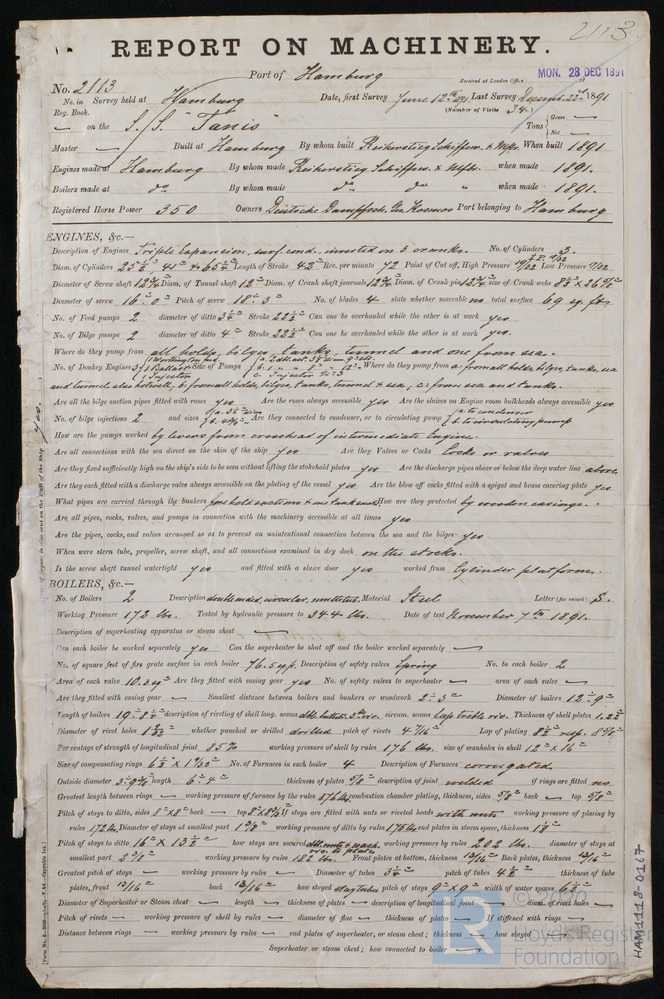 2113
REPORT ON MACHINERY.
Port of Hamburg
Received at London Office
MON. 28 DEC 1891
No. 2113
No. in Survey held at Hamburg Date, first Survey June 12th 1891, Last Survey 1891
Reg. Book. (Number of Visits 34)
on the S.S. "Tanis" Tons Gross Net
Master Built at Hamburg By whom built Reiherstieg When built 1891
Engines made at Hamburg By whom made Reiherstieg when made 1891.
Boilers made at do By whom made do do when made 1891.
Registered Horse Power 350 Owners Deutsche Dampfsch. Ges. Kosmos Port belonging to Hamburg
ENGINES, &c.—
Description of Engines Triple Expansion, surf. cond. inverted on 3 cranks. No. of Cylinders 3.
Diam. of Cylinders Length of Stroke Rev. per minute 72 Point of Cut off, High Pressure Low Pressure
Diam. of Screw shaft Diam. of Tunnel shaft Diam. of Crank shaft journals Diam. of Crank pin size of Crank webs
Diameter of screw 16'. 0" Pitch of screw 18'. 3" No. of blades 4 state whether moveable no total surface 69 sq. ft.
No. of Feed pumps 2 diameter of ditto Stroke Can one be overhauled while the other is at work yes
No. of Bilge pumps 2 diameter of ditto 4" Stroke Can one be overhauled while the other is at work yes.
Where do they pump from all holds, bilges, tanks, tunnel and one from sea.
No. of Donkey Engines 3 Size of Pumps Where do they pump from a: from all holds, bilges, tanks, sea
and tunnel also hotwell, b: from all holds, bilges, tanks, tunnel & sea, c: from sea and tanks.
Are all the bilge suction pipes fitted with roses yes Are the roses always accessible yes Are the sluices on Engine room bulkheads always accessible yes
No. of bilge injections 2 and sizes Are they connected to condenser, or to circulating pump a. to condenser
b. to circulating pump
How are the pumps worked by levers from crosshead of intermediate Engine.
Are all connections with the sea direct on the skin of the ship yes Are they Valves or Cocks Cocks or valves
Are they fixed sufficiently high on the ship's side to be seen without lifting the stokehold plates yes Are the discharge pipes above or below the deep water line above
Are they each fitted with a discharge valve always accessible on the plating of the vessel yes Are the blow off cocks fitted with a spigot and brass covering plate yes
What pipes are carried through the bunkers forehold suctions How are they protected by wooden casings.
Are all pipes, cocks, valves, and pumps in connection with the machinery accessible at all times yes
Are the pipes, cocks, and valves arranged so as to prevent an unintentional connection between the sea and the bilges yes
When were stern tube, propeller, screw shaft, and all connections examined in dry dock on the stocks.
Is the screw shaft tunnel watertight yes and fitted with a sluice door yes worked from Cylinder platform.
BOILERS, &c.—
No. of Boilers 2 Description double ended, circular, multitub. Material Steel Letter (for record) S.
Working Pressure 172 lbs. Tested by hydraulic pressure to 344 lbs. Date of test November 7th 1891.
Description of superheating apparatus or steam chest
Can each boiler be worked separately yes Can the superheater be shut off and the boiler worked separately
No. of square feet of fire grate surface in each boiler Description of safety valves Spring No. to each boiler 2
Area of each valve Are they fitted with easing gear yes No. of safety valves to superheater area of each valve
Are they fitted with easing gear Smallest distance between boilers and bunkers or woodwork 2'. 3" Diameter of boilers 12'. 9"
Length of boilers description of riveting of shell long. seams circum. seams lap treble riv. Thickness of shell plates
Diameter of rivet holes whether punched or drilled drilled pitch of rivets Lap of plating
Per centage of strength of longitudinal joint 85% working pressure of shell by rules 176 lbs. size of manholes in shell 12" x 16"
Size of compensating rings No. of Furnaces in each boiler 4 Description of Furnaces corrugated.
Outside diameter length thickness of plates 5/8" description of joint welded if rings are fitted no
Greatest length between rings working pressure of furnace by the rules combustion chamber plating, thickness, sides 5/8" back top 5/8"
Pitch of stays to ditto, sides 8" x 8" back top If stays are fitted with nuts or riveted heads with nuts working pressure of plating by
rules 172 lbs. Diameter of stays at smallest part working pressure of ditto by rules end plates in steam space, thickness
Pitch of stays to ditto how stays are secured working pressure by rules 202 lbs. diameter of stays at
smallest part working pressure by rules 182 lbs. Front plates at bottom, thickness 13/16" Back plates, thickness 13/16"
Greatest pitch of stays working pressure by rules Diameter of tubes pitch of tubes thickness of tube
plates, front 13/16" back 13/16" how stayed stay tubes pitch of stays 9" x 9" width of water spaces
Diameter of Superheater or Steam chest length thickness of plates description of longitudinal joint diam. of rivet holes
Pitch of rivets working pressure of shell by rules diameter of flue thickness of plates If stiffened with rings
Distance between rings working pressure by rules end plates of superheater, or steam chest; thickness how stayed
Superheater or steam chest; how connected to boiler
yes.
HAM1118-0167
Lloyd's Register
Foundation